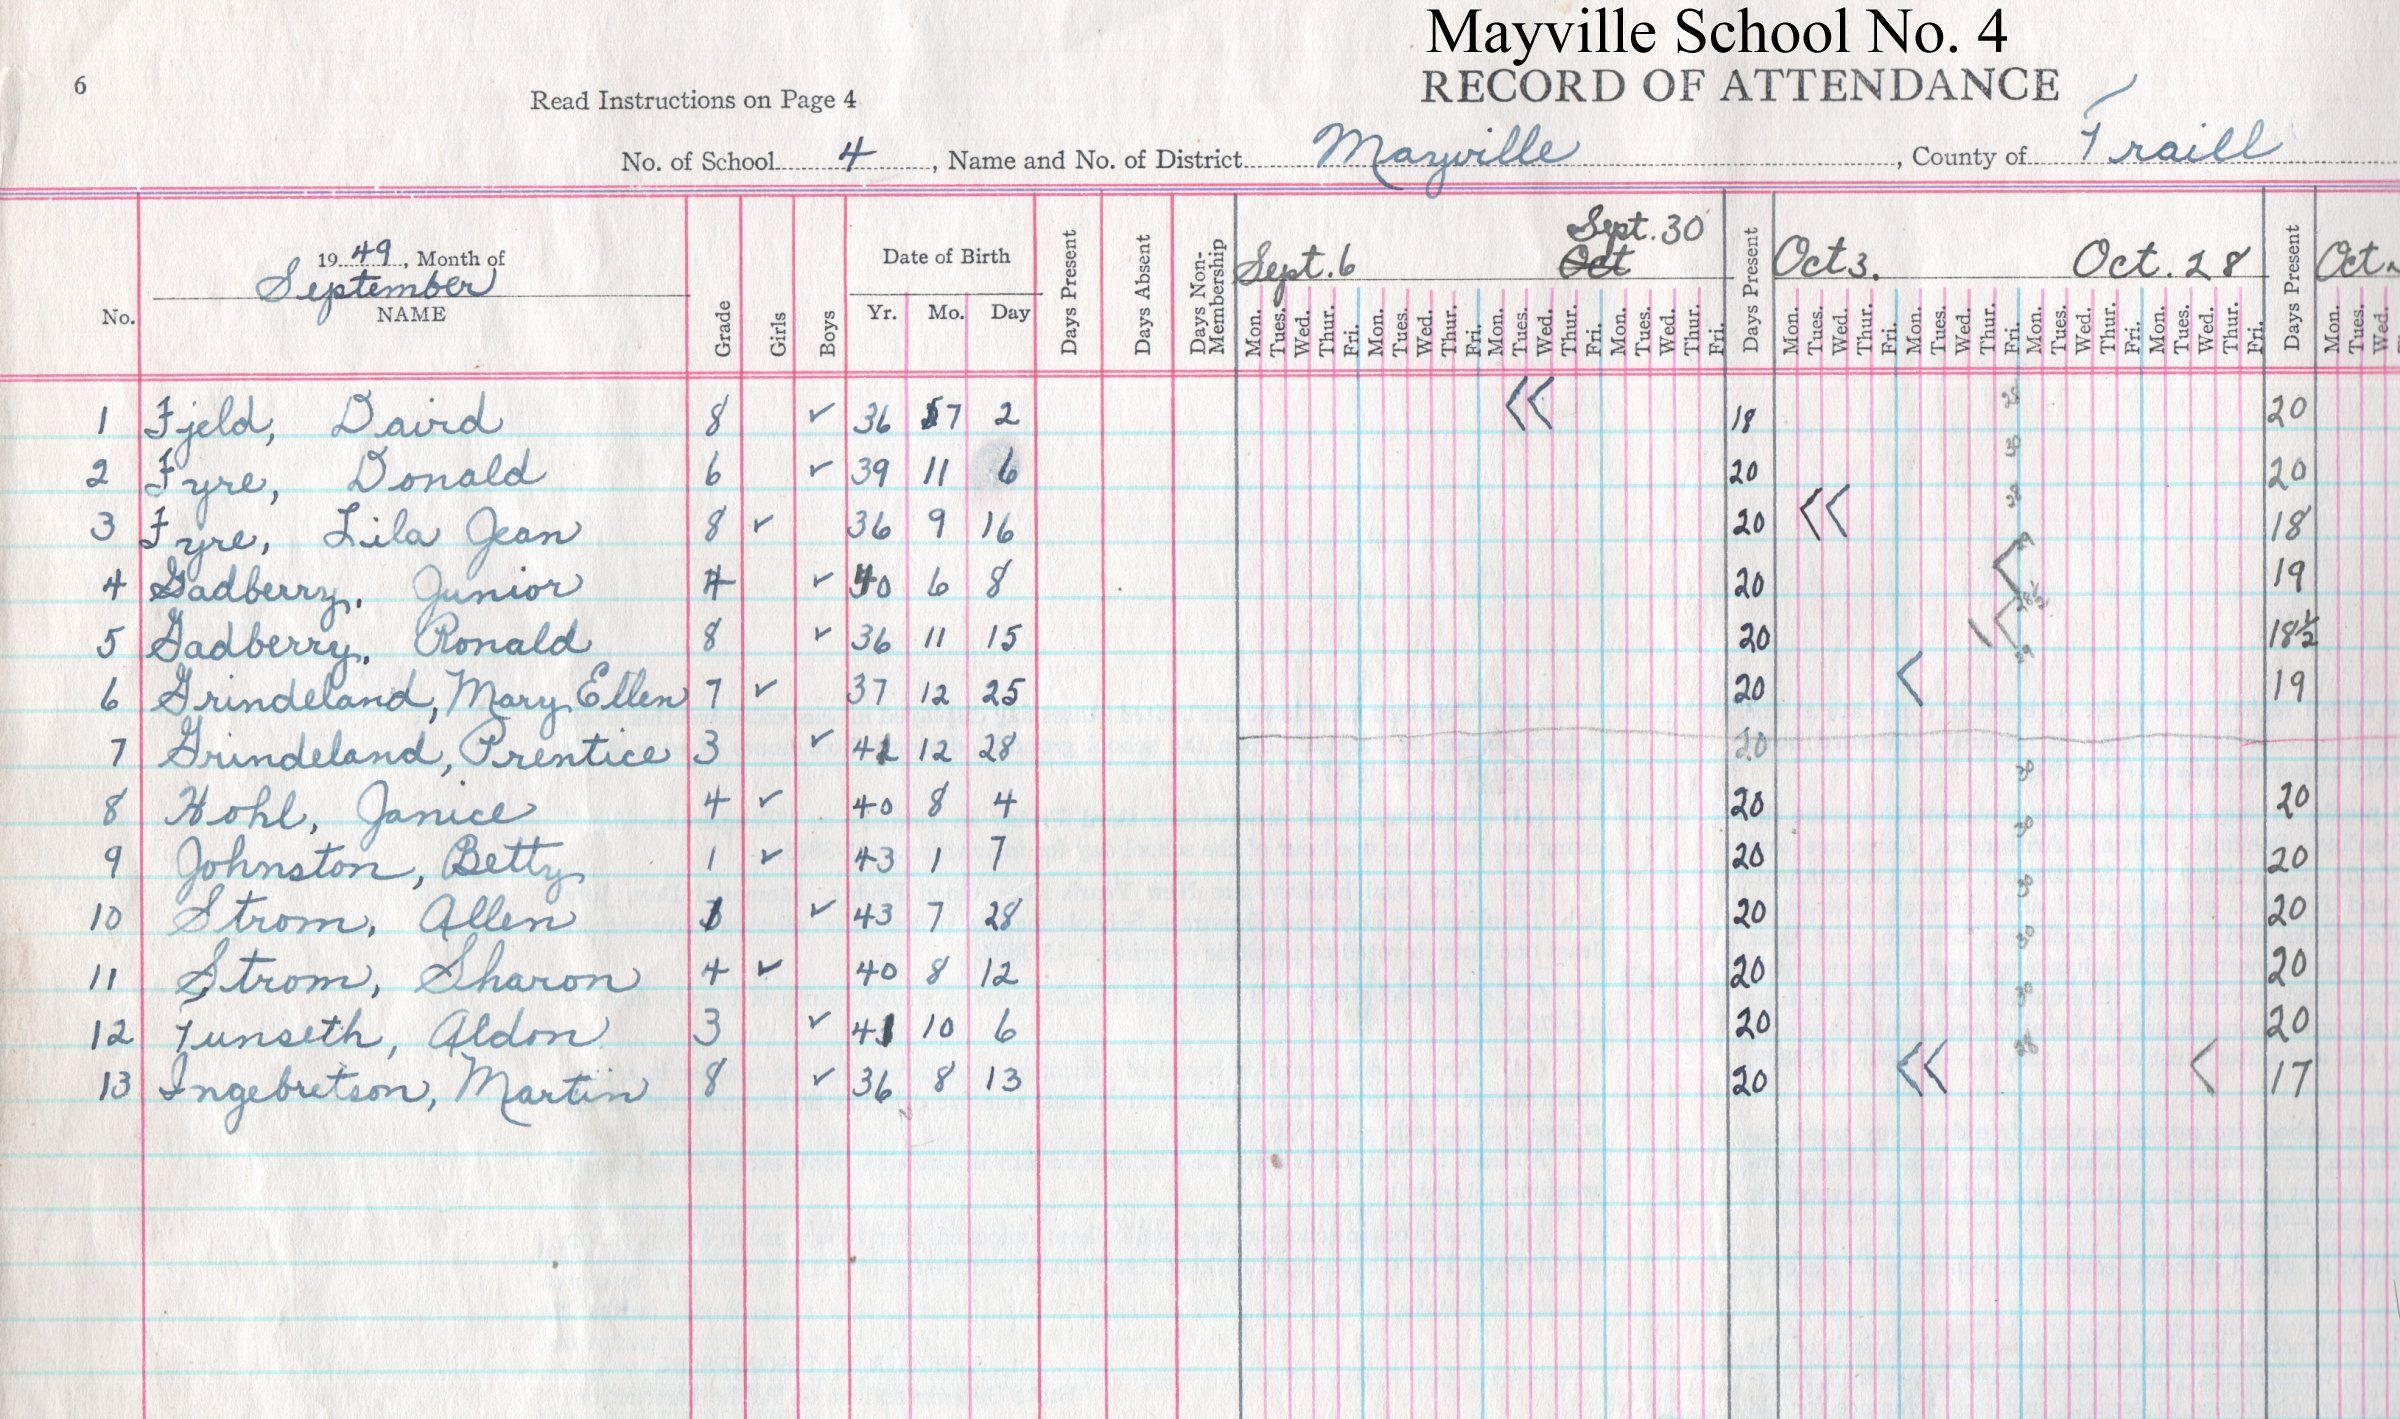 Mayville School No. 4
6 Read Instructions on Page 4 RECORD OF ATTENDANCE
No. of School 4, Name and No. of District Mayville, County of Traill
Sept. 30
Sept. 6 Oct Oct 3. Oct. 28 Oct
1949, Month of September
No. NAME Grade Girls Boys Date of Birth Yr. Mo. Day Days Present Days Absent Days Non-Membership Mon. Tues. Wed. Thur. Fri. Mon. Tues. Wed. Thur. Fri. Mon. Tues. Wed. Thur. Fri. Mon. Tues. Wed. Thur. Fri. Days Present Mon. Tues. Wed. Thur. Fri. Mon. Tues. Wed. Thur. Fri. Mon. Tues. Wed. Thur. Fri. Mon. Tues. Wed. Thur. Fri. Days Present Mon. Tues. Wed.
1 Fjeld, David 8 ✓ 36 7 2 18 20
2 Fyre, Donald 6 ✓ 39 11 6 20 20
3 Fyre, Lila Jean 8 ✓ 36 9 16 20 18
4 Gadberry, Junior 4 ✓ 40 6 8 20 19
5 Gadberry, Ronald 8 ✓ 36 11 15 20 18½
6 Grindeland, Mary Ellen 7 ✓ 37 12 25 20 19
7 Grindeland, Prentice 3 ✓ 41 12 28 20
8 Hohl, Janice 4 ✓ 40 8 4 20 20
9 Johnston, Betty 1 ✓ 43 1 7 20 20
10 Strom, Allen 1 ✓ 43 7 28 20 20
11 Strom, Sharon 4 ✓ 40 8 12 20 20
12 Tunseth, Aldon 3 ✓ 41 10 6 20 20
13 Ingebretson, Martin 8 ✓ 36 8 13 20 17